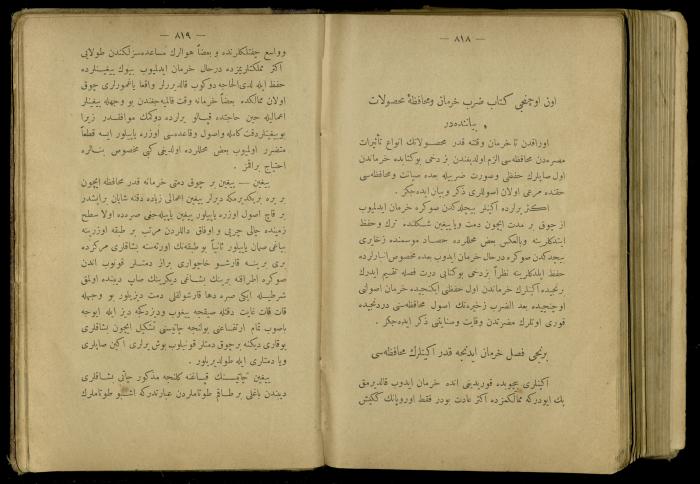 — ٨١٨ —
اون اوچنجی كتاب ضرب خرمان ومحافظهٔ محصولات
بیاننده‌در
اوراقدن تا خرمان وقتنه قدر محصولاتك انواع تأثیرات
مضره‌دن محافظه‌سی الزم اولدیغندن بزدخی بوكتابده خرماندن
اول صاپلرك حفظنی وصورت ضربیله بعده صیانت ومحافظه‌سی
حقنده مرعی اولان اصوللری ذكر وبیان ایده‌جكز .
اكثر یرلرده اكینلر بیچلدكدن صوكره خرمان ایدلمیوب
از چوق بر مدت ایچون دمت ویاییغین شكلنده ترك وحفظ
ایتدكلرینه وبالعكس بعض محللرده حصاد موسمنده زخایری
بیچدكدن صوكره درحال خرمان ایدوب بعده مخصوص انبارلرده
حفظ ایلدكلرینه نظراً بزدخی بوكتابی درت فصله تقسیم ایدرك
برنجیده اكینلرك خرماندن اول حفظنی ایكنجیده خرمان اصولنی
اوچنجیده بعد الضرب زخیره‌نك اصول محافظه‌سنی دردنجیده
قوری اوتلرك مضرتدن وقایت وصیانتنی ذكر ایده‌جكز .
برنجی فصل خرمان ایدنجه قدر اكینلرك محافظه‌سی
اكینلری بیچوبده قوریدیغنی انده خرمان ایدوب قالدیرمق
پك ایودركه ممالكمزده اكثر عادت بودر فقط اوروپانك كنیش
— ٨١٩ —
وواسع چفتلكلرنده و بعضاً هوالرك مساعده‌سزلكندن طولایی
اكثر مملكتلریمزده درحال خرمان ایدلمیوب بیوك ییغینلرده
حفظ ایله لدی‌الحاجه دوكوب قالدیررلر واقعا یاغمورلری چوق
اولان ممالكده بعضاً خرمانه وقت قالمیه‌جغندن بو وجهله ییغینلر
اعمالیله حین حاجتنده قپالو یرلرده دوكمك موافقدر زیرا
بوییغینلردقت كامله واصول وقاعده‌سی اوزره یاپیلور ایسه قطعاً
متضرر اولمیوب بعض محللرده اولدیغی كبی مخصوص بنالره
احتیاج براقمز .
ییغین — ییغین بر چوق دمتی خرمانه قدر محافظه ایچون
بر یره بریكدیرمكه دیرلر ییغین اعمالی زیاده دقته شایان برایشدر
بر قاچ اصول اوزره یاپیلور ییغین یاپیله‌جق صره‌ده اولا سطح
زمینده چالی چرپی و اوفاق داللردن مرتب بر طبقه اوزرینه
یباغی صمان یاپیلور ثانیاً بوطبقه‌نك اورته‌سنه بشاقلری مركزده
بری برینه قارشو خاچواری براز دمتلر قونوب اندن
صوكره اطرافنه برینك بشاغی دیكرینك صاپ دیبنده اولمق
شرطیله ایكی صره دها قارشولقلی دمت دیزیلور بو وجهله
قات قات غایت دقتله صیقجه ییغوب ودیزدكجه دیز ایله ایوجه
باصوب تمام ارتفاعنی بولنجه چاتیسنی تشكیل ایچون بشاقلری
یوقاری دیكنه برچوق دمتلر قونیلوب بوش یرلری اكین صاپلری
ویا دمتلری ایله طولدیریلور .
ییغین چاتیسنك قپاغنه كلنجه مذكور چاتی بشاقلری
دیبندن باغلی برطاقم طوتاملردن عبارتدركه اشبو طوتاملرك